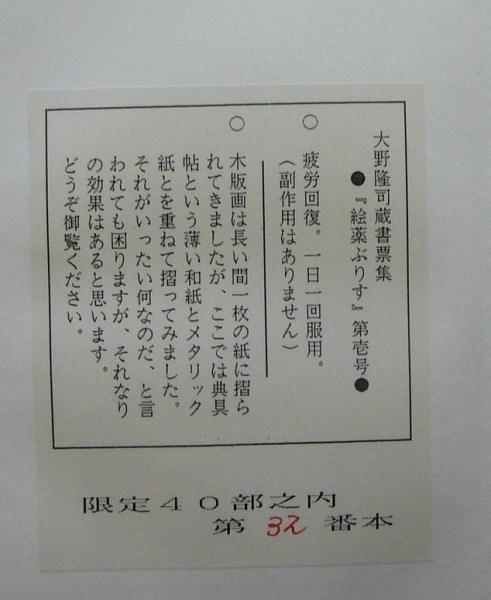 大野隆司蔵書票集
●『絵薬ぶりす』第壱号●
○ 疲労回復。一日一回服用。
（副作用はありません）
○ 木版画は長い間一枚の紙に摺ら
れてきましたが、ここでは典具
帖という薄い和紙とメタリック
紙とを重ねて摺ってみました。
それがいったい何なのだ、と言
われても困りますが、それなり
の効果はあると思います。
どうぞ御覧ください。
限定４０部之内
第 32 番本